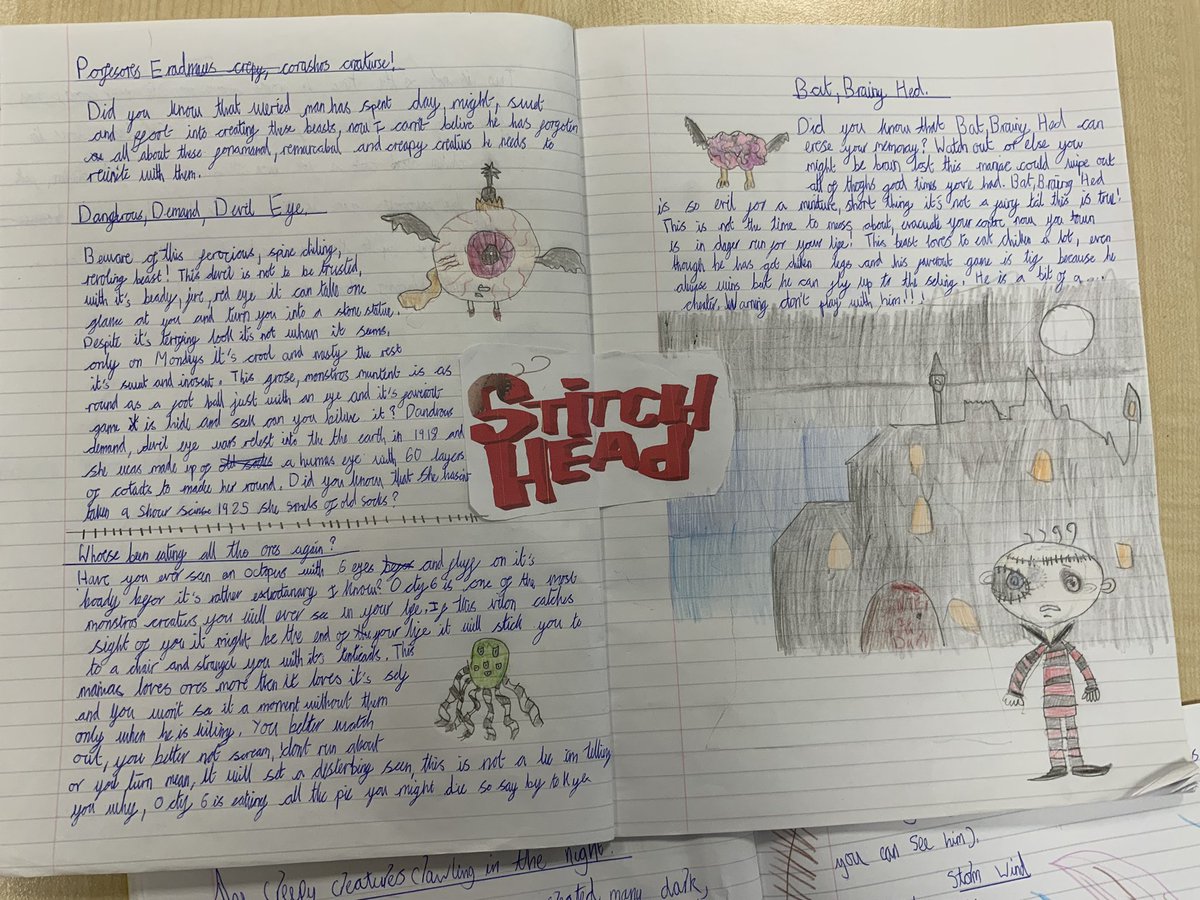 Porfesores Eradmus crepy, corashos creaturse!
Did you know that weried man has spent day, might, swet
and eport into creating these beasts, now I carn't belive he has forgoten
all about these ponamanal, remarcabal and creapy creatius he needs to
reunite with them.
Dangdrous, Demand, Devil Eye.
Beware of this ferocious, spine chiling,
revolting beast! This devil is not to be trusted,
with it's beady, fire, red eye it can take one
glance at you and turn you into a stone statue.
Despite it's terrifying look it's not whan it seems,
only on Mondays it's crool and nasty the rest
it's swut and inosent. This grose, monstros muntent is as
round as a foot ball just with an eye and it's faverout
game is hide and seek can you belive it? Dandrous
demand, devil eye wars relest into the the earth in 1918 and
she was made up of old socks a human eye with 60 layers
of cotacts to made her round. Did you know that she hasint
taken a shour scinse 1925 she smels of old socks?
Whoose been eating all the ores again?
Have you ever seen an octopus with 6 eyes and fluff on it's
boady befor it's rather extrodanary I know? Octy 6 is one of the most
monstros creatius you will ever see in your life. If this vilon catches
sight of you it might be the end of your life it will stick you to
to a chair and strangel you with it's tenticals. This
maniac loves ores more then it loves it's self
and you won't sa it a moment without them
only when he is killing. You better watch
out, you better not scream, don't run about
or you turn mean, It will set a disterbing seen, this is not a lie im telling
you why, Octy 6 is eating all the pie you might die so say by to K ye
STITCH HEAD
Bat, Brainy Hed.
Did you know that Bat, Brainy Hed can
erese your memory? Watch out or else you
might be brain lost this maniac could wipe out
all of thoghs good times you've had. Bat, Brainy Hed
is so evil for a minture, short thing it's not a fairy tail this is true!
This is not the time to mess about, evacuate your contre now you town
is in dager run for your life! This beast loves to eat chiken a lot, even
though he has got chiken legs and his faverout game is tig because he
always wins but he can fly up to the seling. He is a bit of a....
cheater, Warning don't play with him!!!
creepy creatures clawling in the night.
created many dark,
you can see him).
Storm Wind